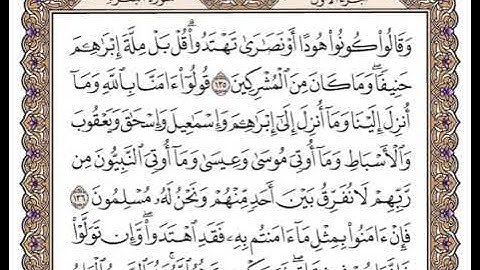 وَقَالُوا۟ كُونُوا۟ هُودًا أَوْ نَصَـٰرَىٰ تَهْتَدُوا۟ ۗ قُلْ بَلْ مِلَّةَ إِبْرَٰهِـۧمَ
حَنِيفًا ۖ وَمَا كَانَ مِنَ ٱلْمُشْرِكِينَ ١٣٥ قُولُوٓا۟ ءَامَنَّا بِٱللَّهِ وَمَآ
أُنزِلَ إِلَيْنَا وَمَآ أُنزِلَ إِلَىٰٓ إِبْرَٰهِـۧمَ وَإِسْمَـٰعِيلَ وَإِسْحَـٰقَ وَيَعْقُوبَ
وَٱلْأَسْبَاطِ وَمَآ أُوتِىَ مُوسَىٰ وَعِيسَىٰ وَمَآ أُوتِىَ ٱلنَّبِيُّونَ مِن
رَّبِّهِمْ لَا نُفَرِّقُ بَيْنَ أَحَدٍ مِّنْهُمْ وَنَحْنُ لَهُۥ مُسْلِمُونَ ١٣٦
فَإِنْ ءَامَنُوا۟ بِمِثْلِ مَآ ءَامَنتُم بِهِۦ فَقَدِ ٱهْتَدَوا۟ ۖ وَّإِن تَوَلَّوْا۟